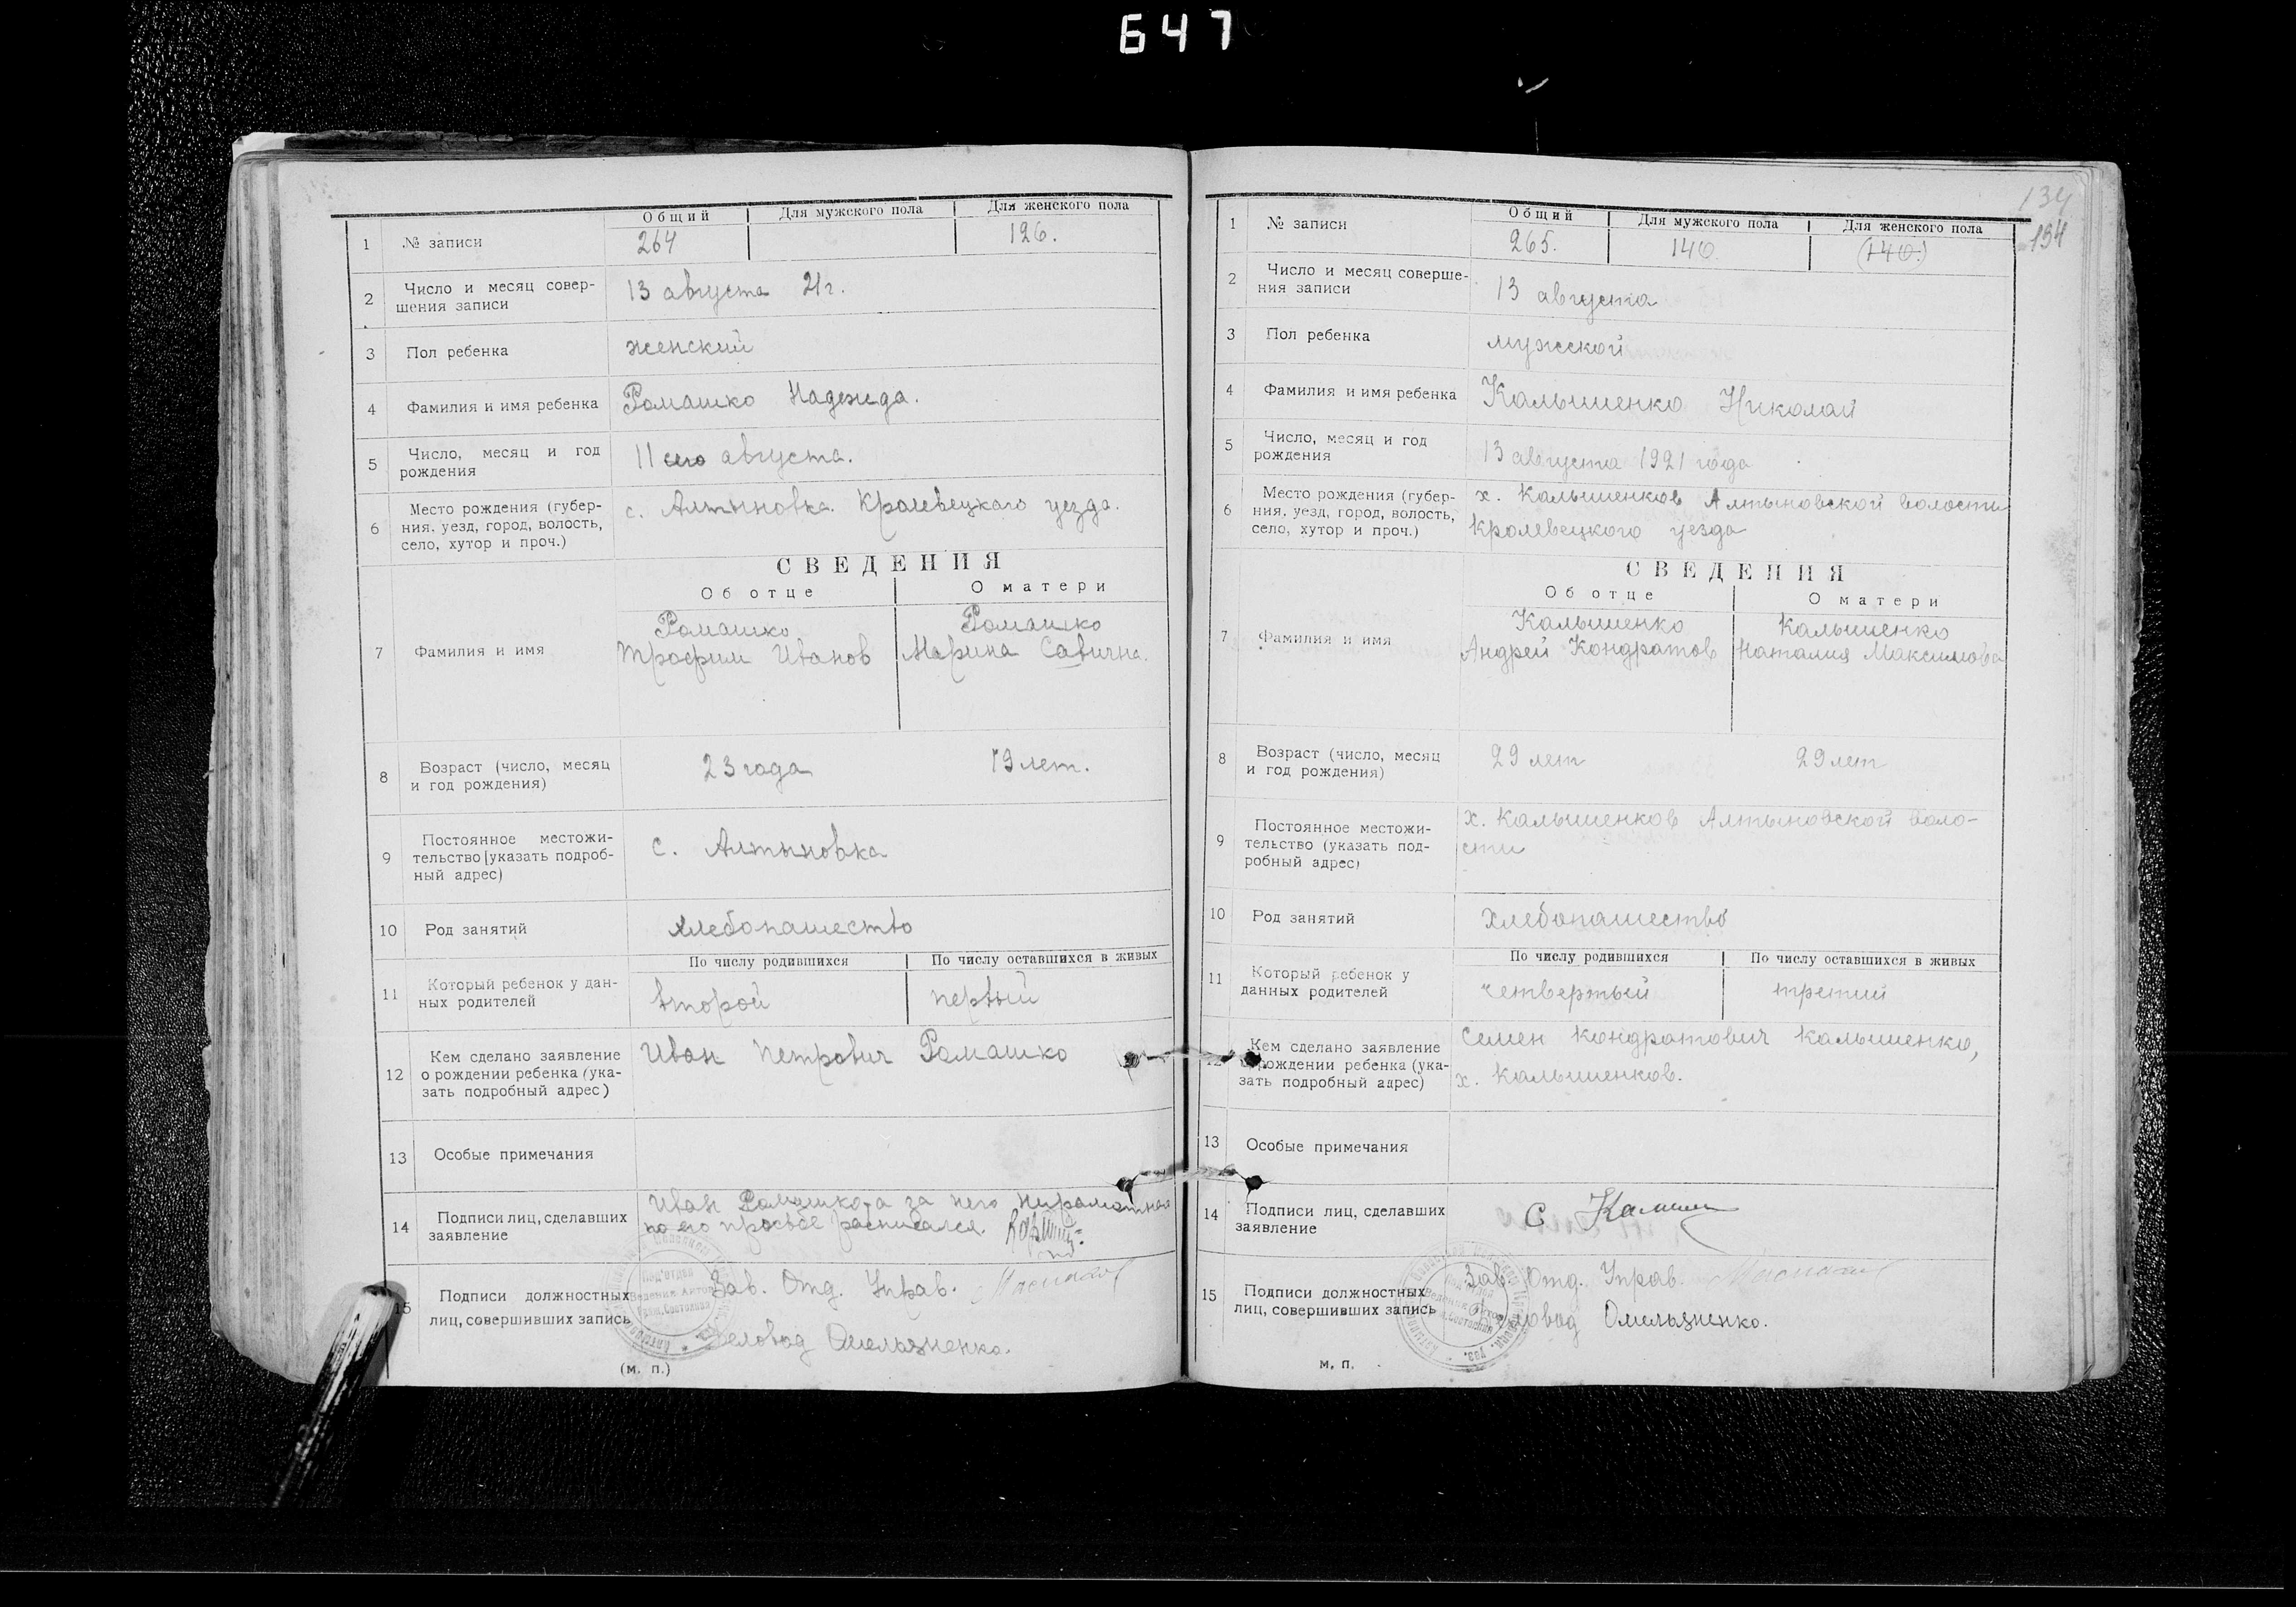 647
Общий Для мужского пола Для женского пола
1 № записи 264 126.
2 Число и месяц совер-
шения записи 13 августа 21г.
3 Пол ребенка женский
4 Фамилия и имя ребенка Ромашко Надежда.
5 Число, месяц и год
рождения 11 сего августа.
6 Место рождения (губер-
ния, уезд, город, волость,
село, хутор и проч.)
с. Алтыновка Кролевецкаго уезда.
СВЕДЕНИЯ
Об отце О матери
7 Фамилия и имя
Ромашко Ромашко
Трофим Иванов Марина Савична.
8 Возраст (число, месяц
и год рождения) 23 года 19 лет.
9 Постоянное местожи-
тельство [указать подроб-
ный адрес)
с. Алтыновка
10 Род занятий хлебопашество
По числу родившихся По числу оставшихся в живых
11 Который ребенок у дан-
ных родителей второй первый
12 Кем сделано заявление
о рождении ребенка (ука-
зать подробный адрес)
Иван Петрович Ромашко
13 Особые примечания
14 Подписи лиц, сделавших
заявление
Иван Ромашко а за него
по его просьбе расписался.
15 Подписи должностных
лиц, совершивших запись
Зав. Отд. Управ.
Деловод Омельяненко.
(м. п.)
134
134
Общий Для мужского пола Для женского пола
1 № записи 265. 140 (140.)
2 Число и месяц соверше-
ния записи 13 августа
3 Пол ребенка мужской
4 Фамилия и имя ребенка Калышенко Николай
5 Число, месяц и год
рождения 13 августа 1921 года
6 Место рождения (губер-
ния, уезд, город, волость,
село, хутор и проч.)
х. Калышенков Алтыновской волости
Кролевецкого уезда
СВЕДЕНИЯ
Об отце О матери
7 Фамилия и имя
Калышенко Калышенко
Андрей Кондратов Наталия Максимова
8 Возраст (число, месяц
и год рождения) 29 лет 29 лет
9 Постоянное местожи-
тельство (указать под-
робный адрес)
х. Калышенков Алтыновской воло-
сти
10 Род занятий хлебопашество
По числу родившихся По числу оставшихся в живых
11 Который ребенок у
данных родителей четвертый третий
12 Кем сделано заявление
о рождении ребенка (ука-
зать подробный адрес)
Семен Кондратович Калышенко,
х. Калышенков.
13 Особые примечания
14 Подписи лиц, сделавших
заявление
С
15 Подписи должностных
лиц, совершивших запись
Зав. Отд. Управ.
Деловод Омельяненко.
м. п.